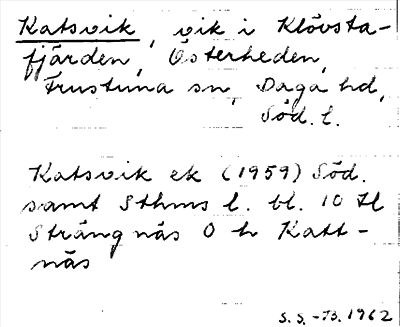 Katsvik, vik i Klövsta-
fjärden, Österheden,
Frustuna sn, Daga hd,
Söd. l.
Katsvik ek (1959) Söd.
samt Sthms l. bl. 10 Il
Strängnäs O h Katt-
näs
S.S. -73. 1962